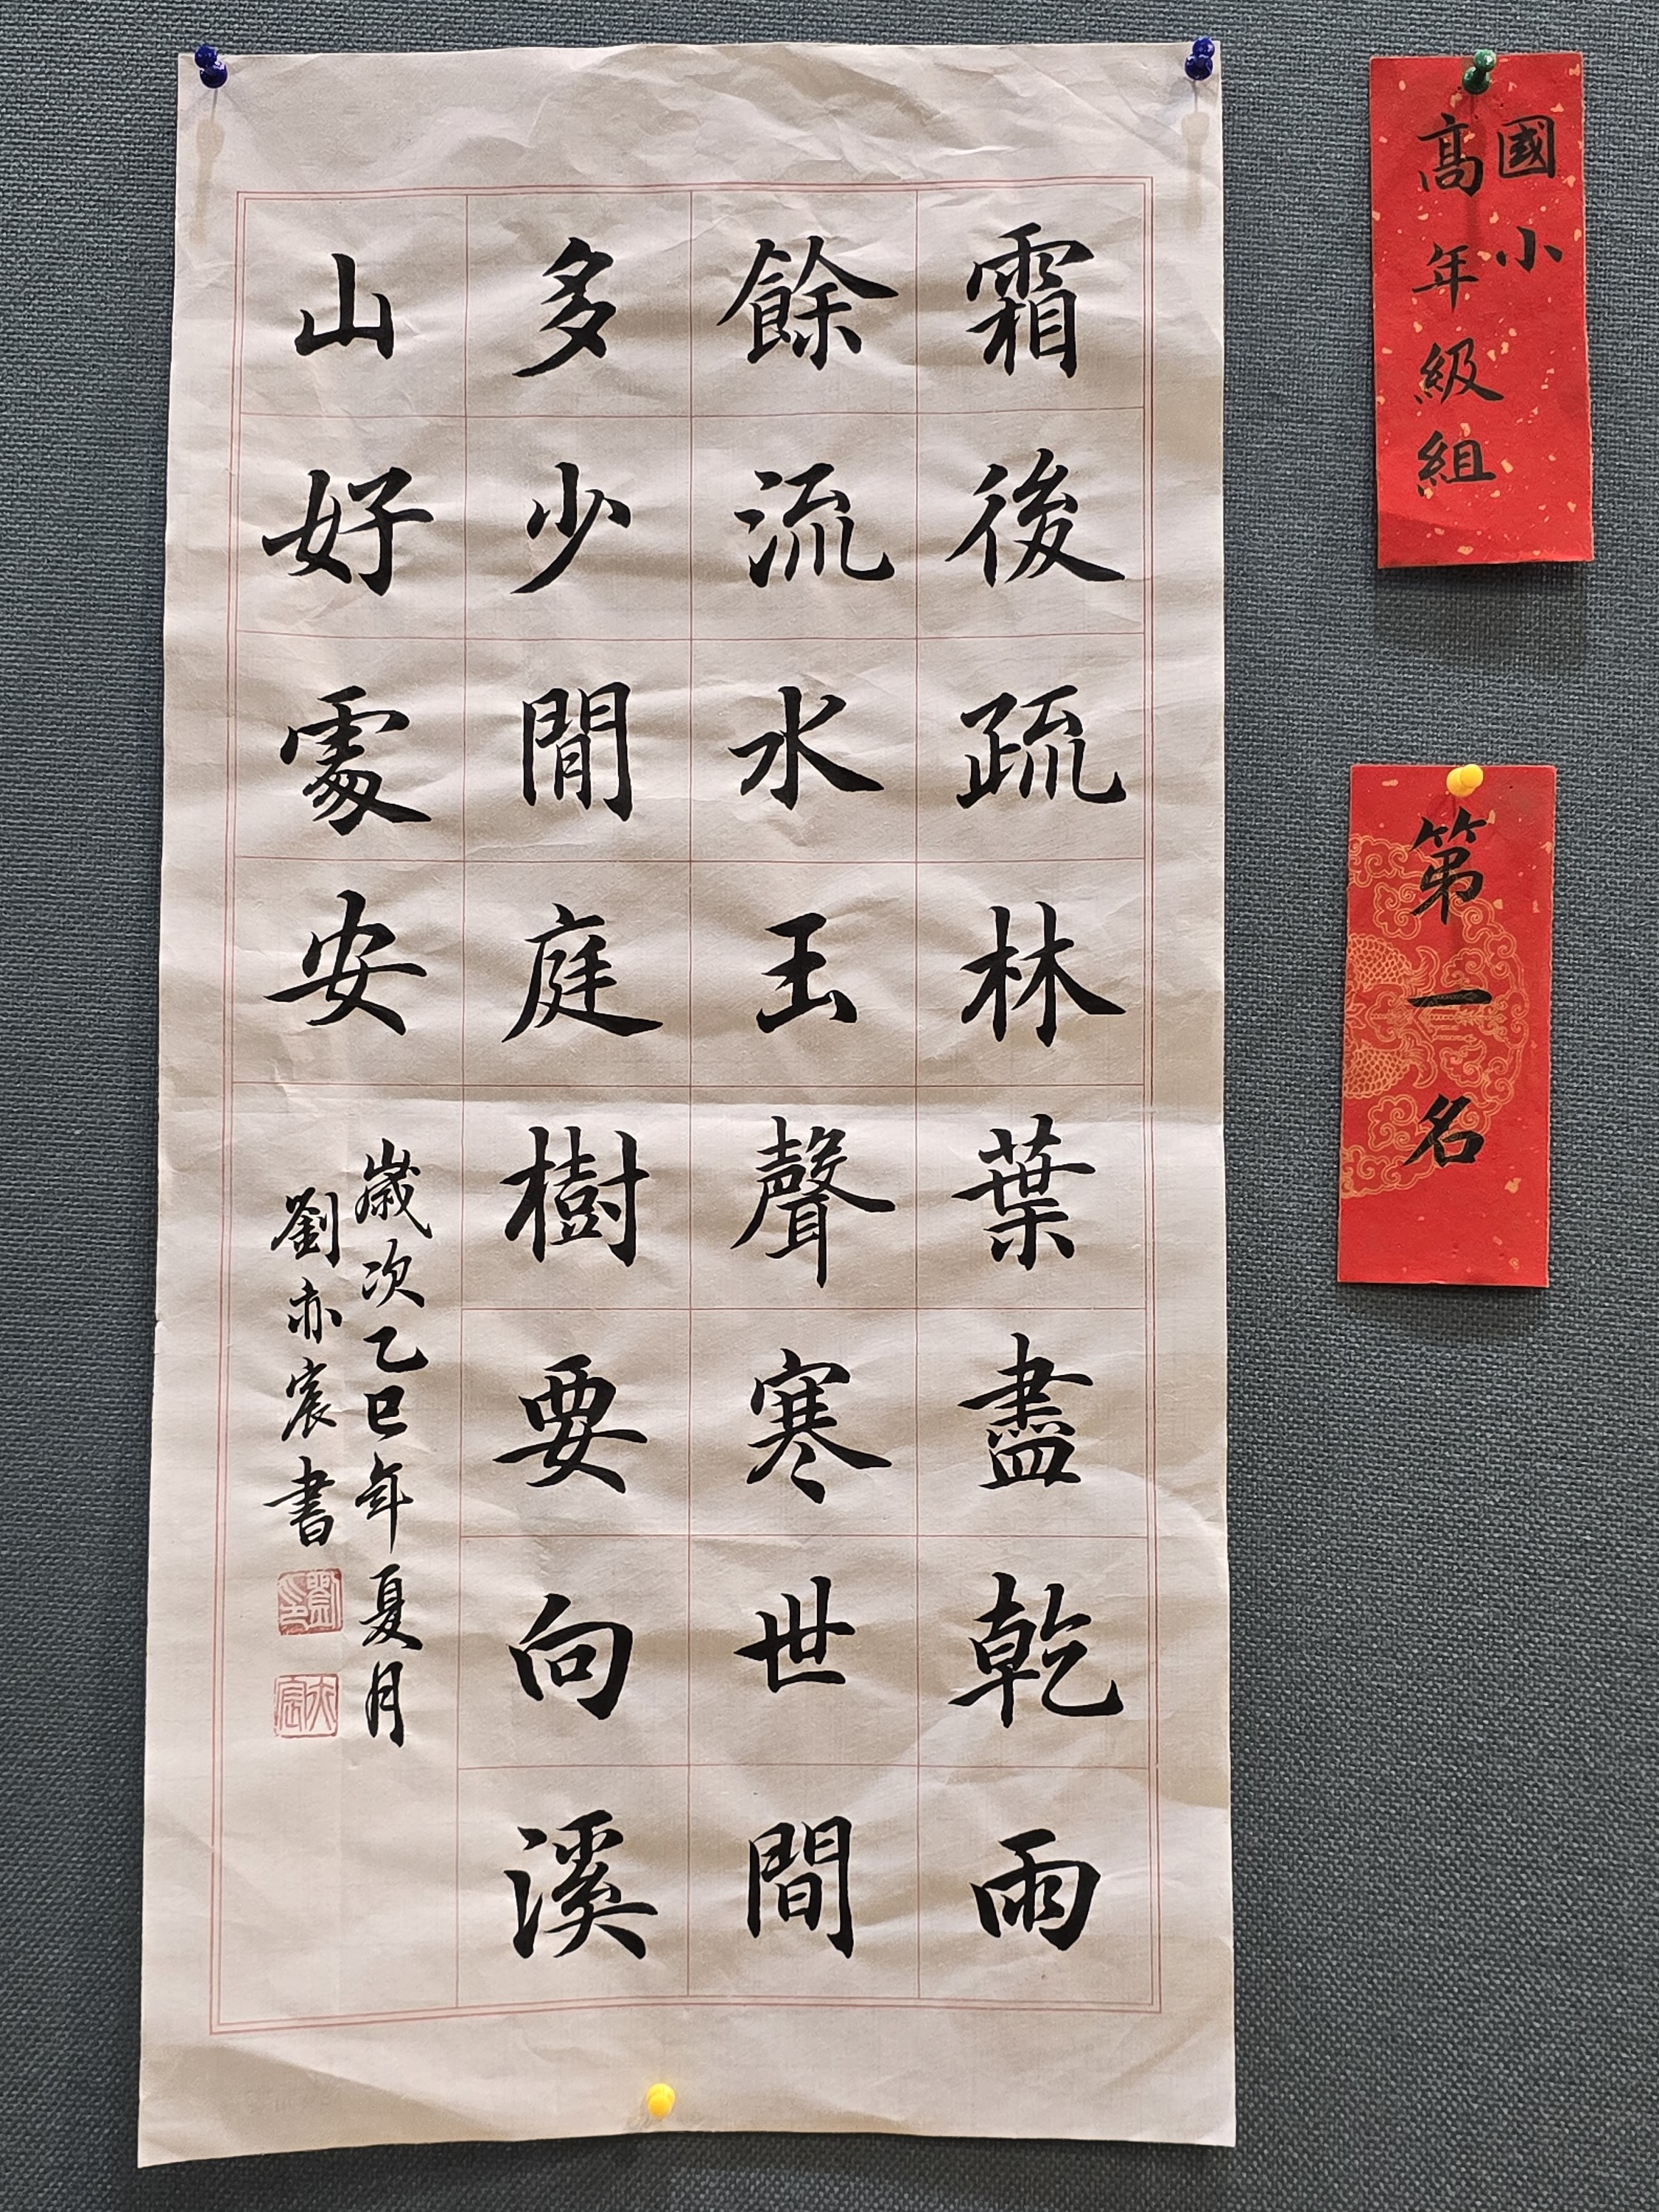 國小
高年級組
第一名
霜後疏林葉盡乾雨
餘流水玉聲寒世間
多少閒庭樹要向溪
山好處安
歲次乙巳年夏月
劉亦宸書
劉印
亦宸